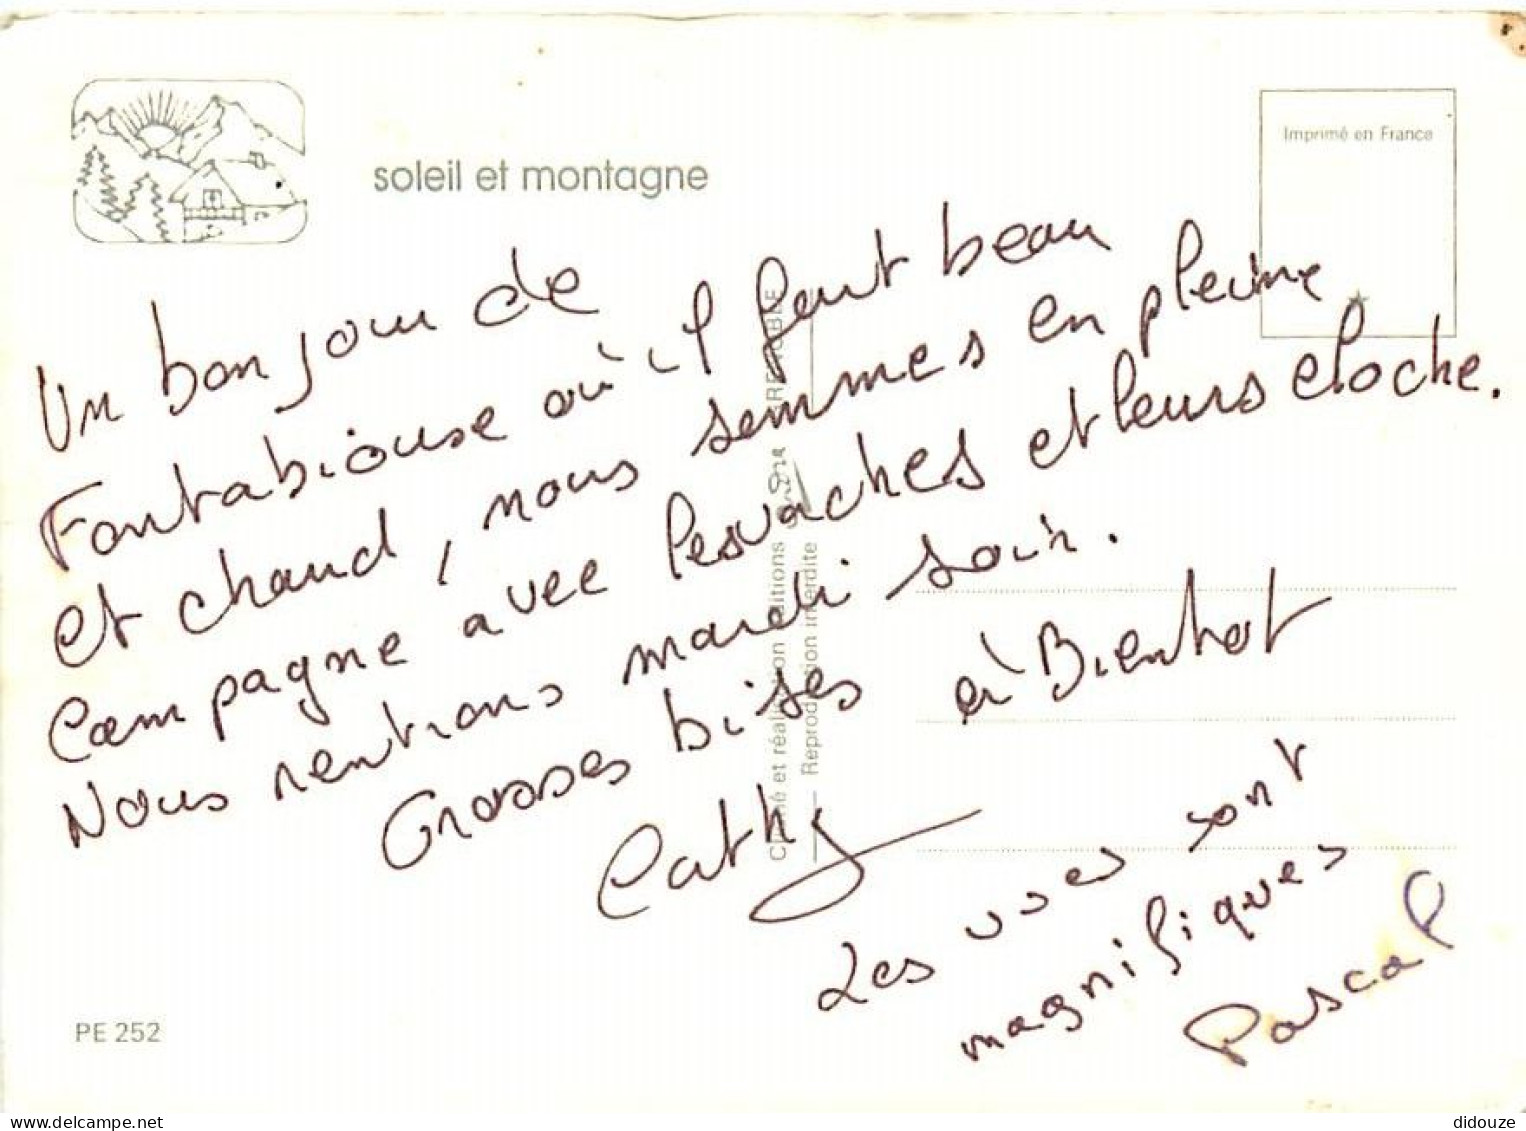 soleil et montagne
Imprimé en France
Un bonjour de
Fontabiouse où il faut beau
et chaud, nous sommes en pleine
Campagne avec les vaches et leurs cloche.
Nous rentrons mardi soir.
Grosses bises à Bientot
Cathy
Les vues sont
magnifiques
Pascal
Reproduction interdite
PE 252
didouze